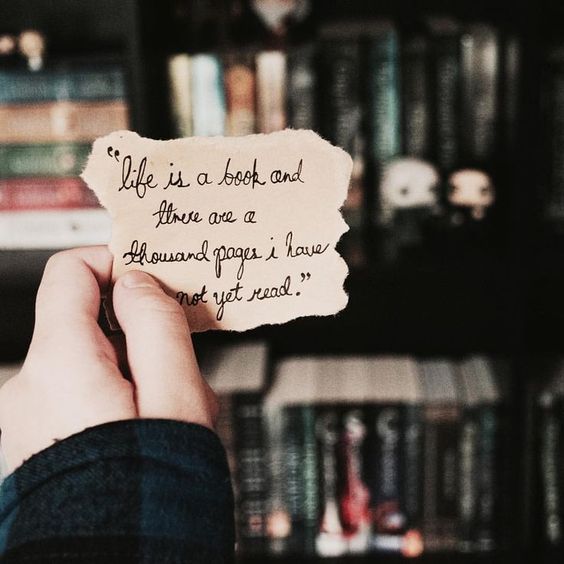 "life is a book and
there are a
thousand pages i have
not yet read."